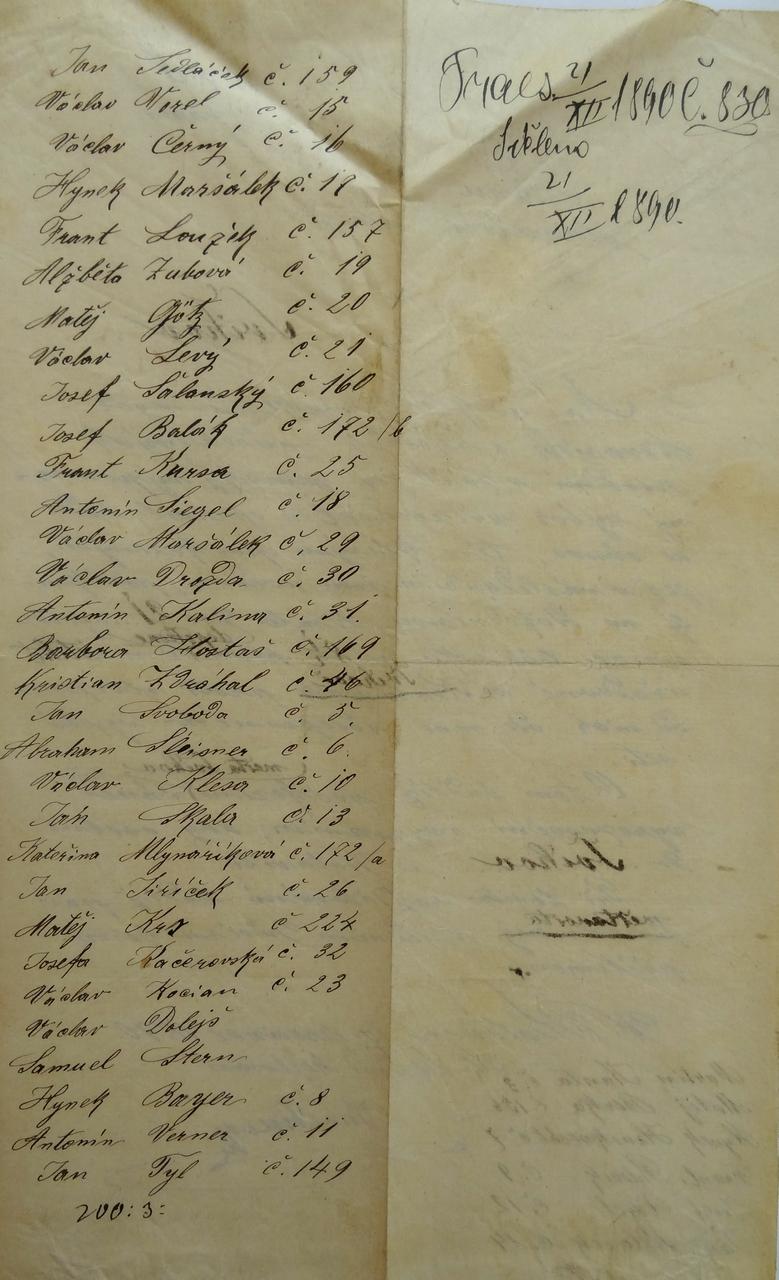 Jan Sedláček č. 159
Václav Vorel č. 15
Václav Černý č. 16
Hynek Maršálek č. 17
Frant Loužek č. 157
Alžběta Zubová č. 19
Matěj Götz č. 20
Václav Levý č. 21
Josef Šálanský č. 160
Josef Balák č. 172/b
Frant Kursa č. 25
Antonín Siegel č. 18
Václav Maršálek č. 29
Václav Drozda č. 30
Antonín Kalina č. 31.
Barbora Hostaš č. 169
Kristian Zdráhal č. 46
Jan Svoboda č. 5.
Abraham Šleisner č. 6.
Václav Klesa č. 10
Jan Skala č. 13
Kateřina Mlynáříková č. 172/a
Jan Jiříček č. 26
Matěj Krs č 224
Josefa Kačerovská č. 32
Václav Kocian č. 23
Václav Dolejš
Samuel Stern
Hynek Bayer č. 8
Antonín Verner č. 11
Jan Tyl č. 149
200: 3:
21/XII 1890 Č. 830
21/XII 1890.